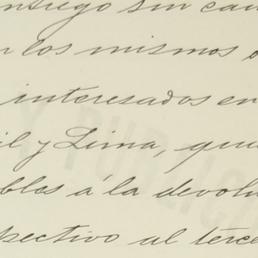 ntrego sin cau
n los mismos o
interesados en
il y Lima, que
bles á la devolu
spectivo al terce
PUBLIC